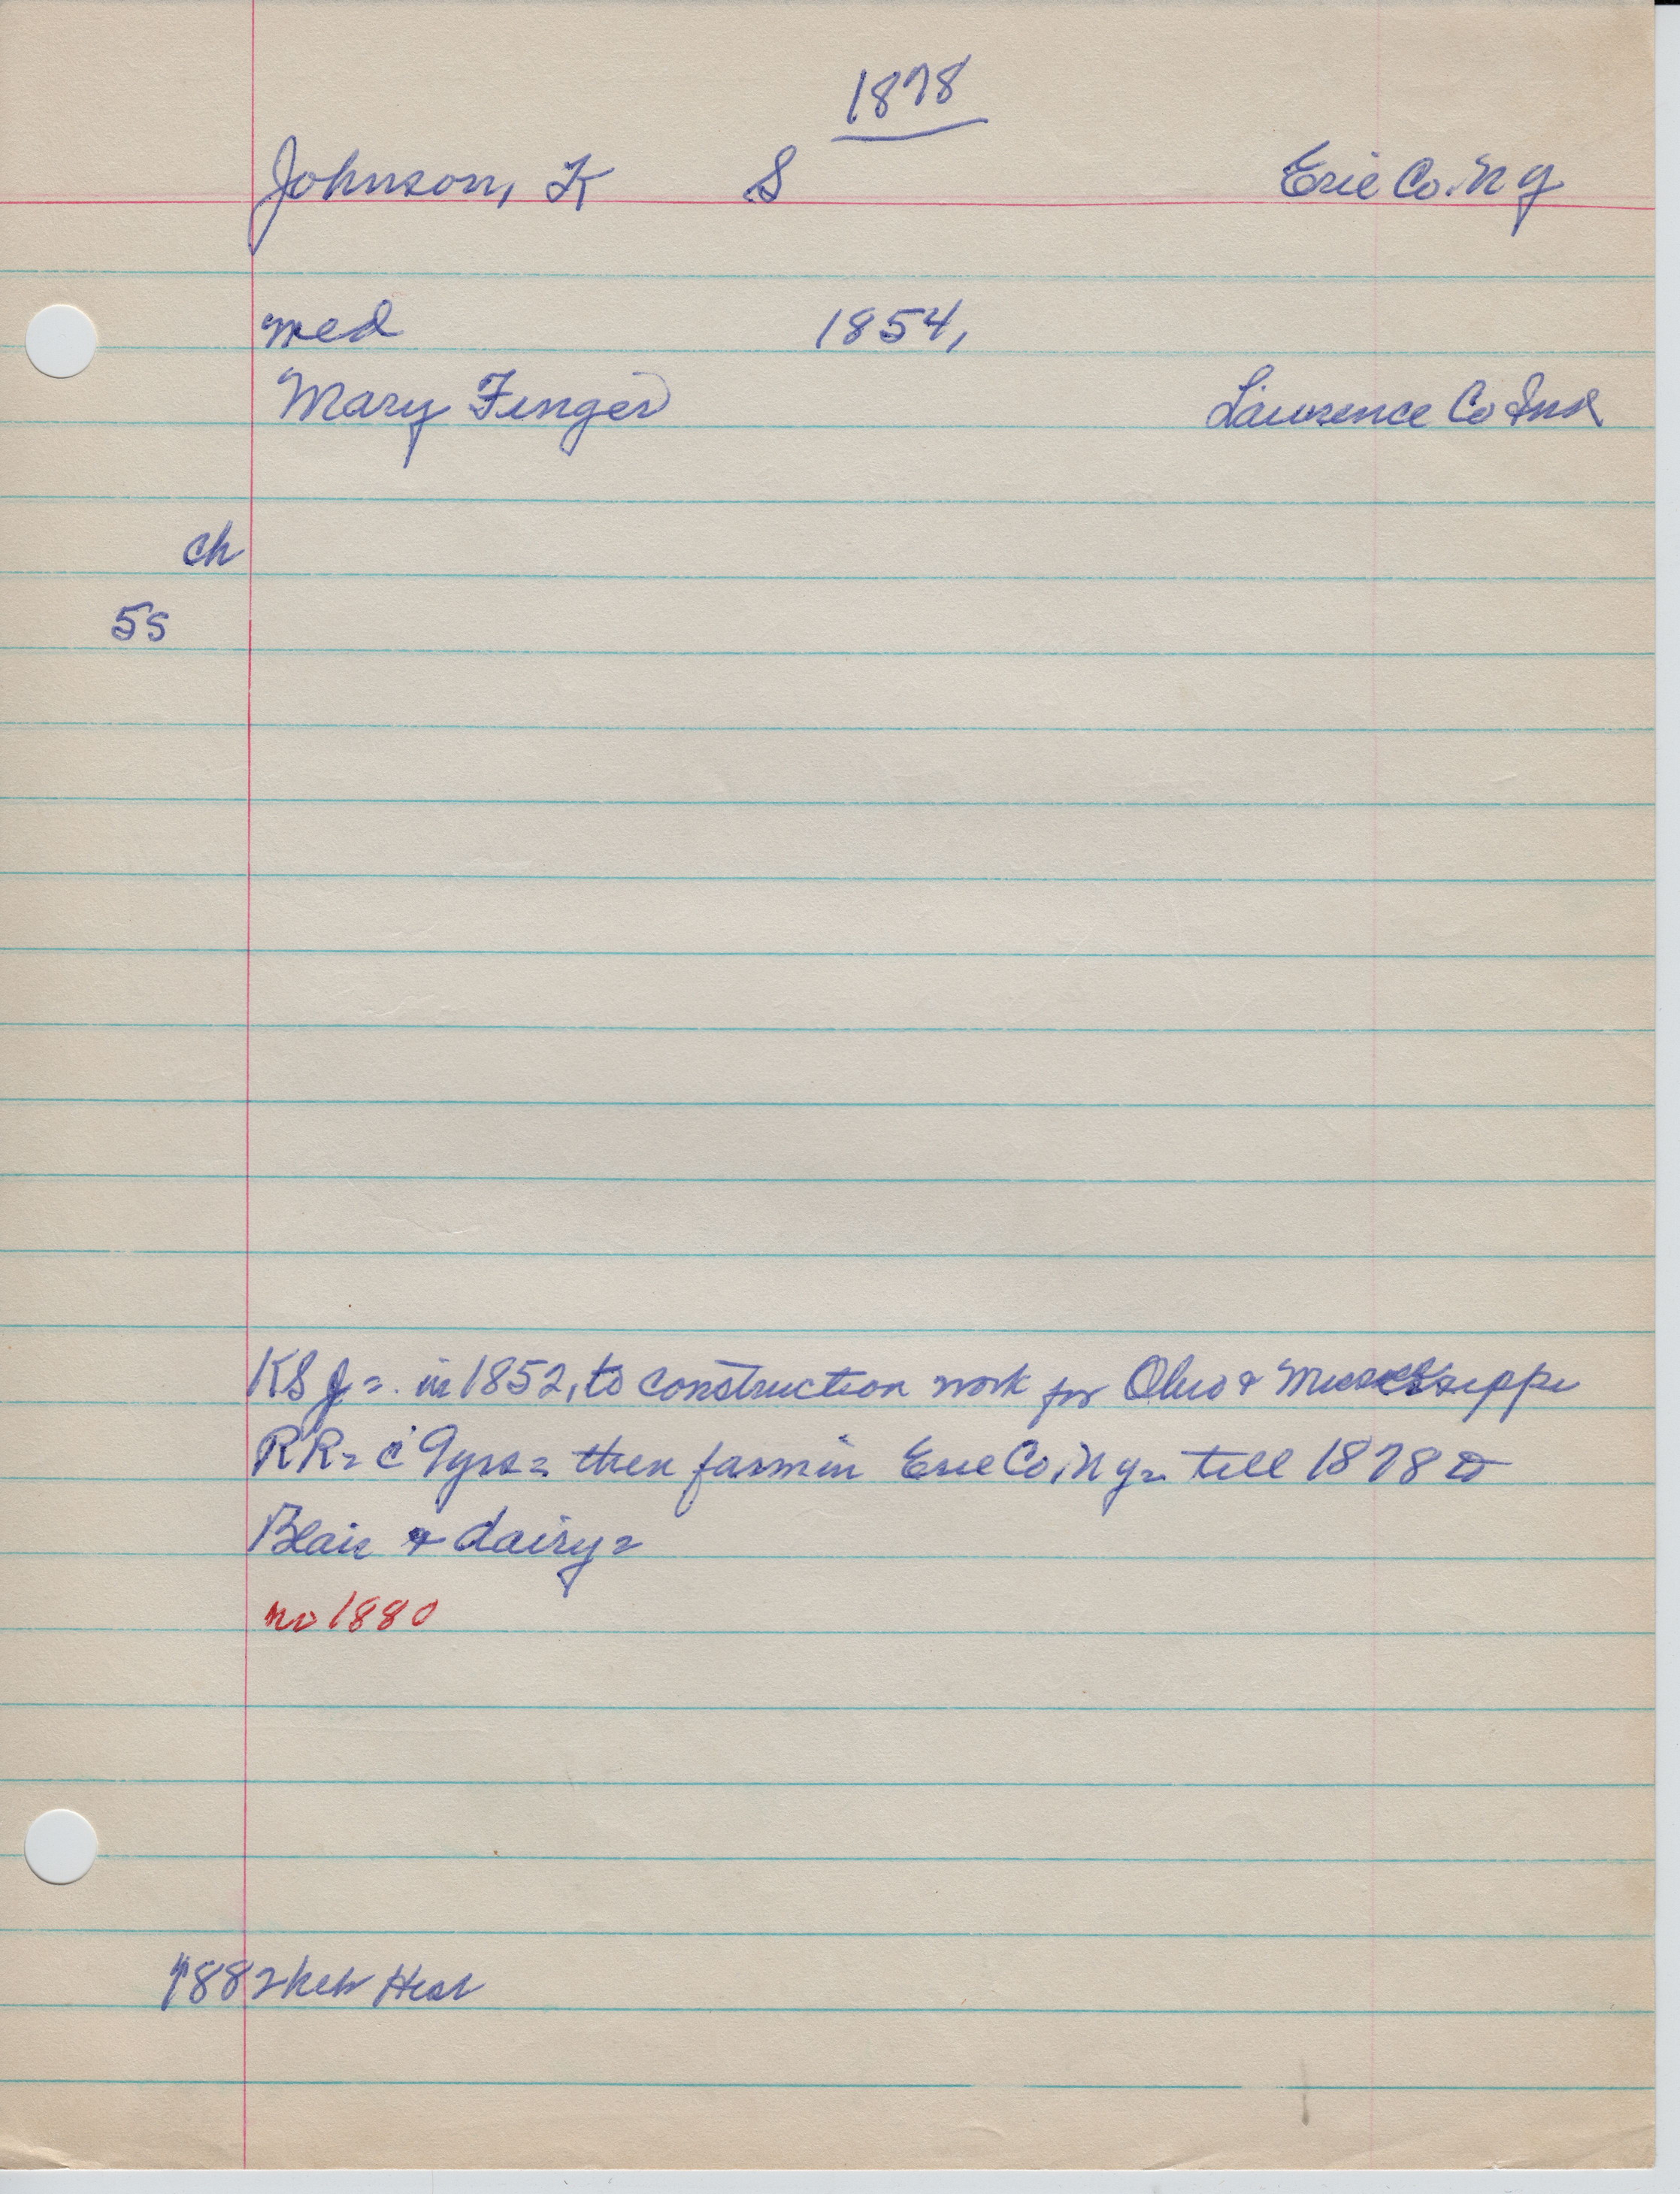 1878
Johnson, K S Erie Co. N Y
med 1854,
Mary Finger Lawrence Co Ind
ch
5s
KSJ=. in 1852, to construction work for Ohio & Mississippi
RR= c̄ 9yrs= then farm in Erie Co, N Y= till 1878 to
Blair & dairy=
no 1880
1882 Neb Hist